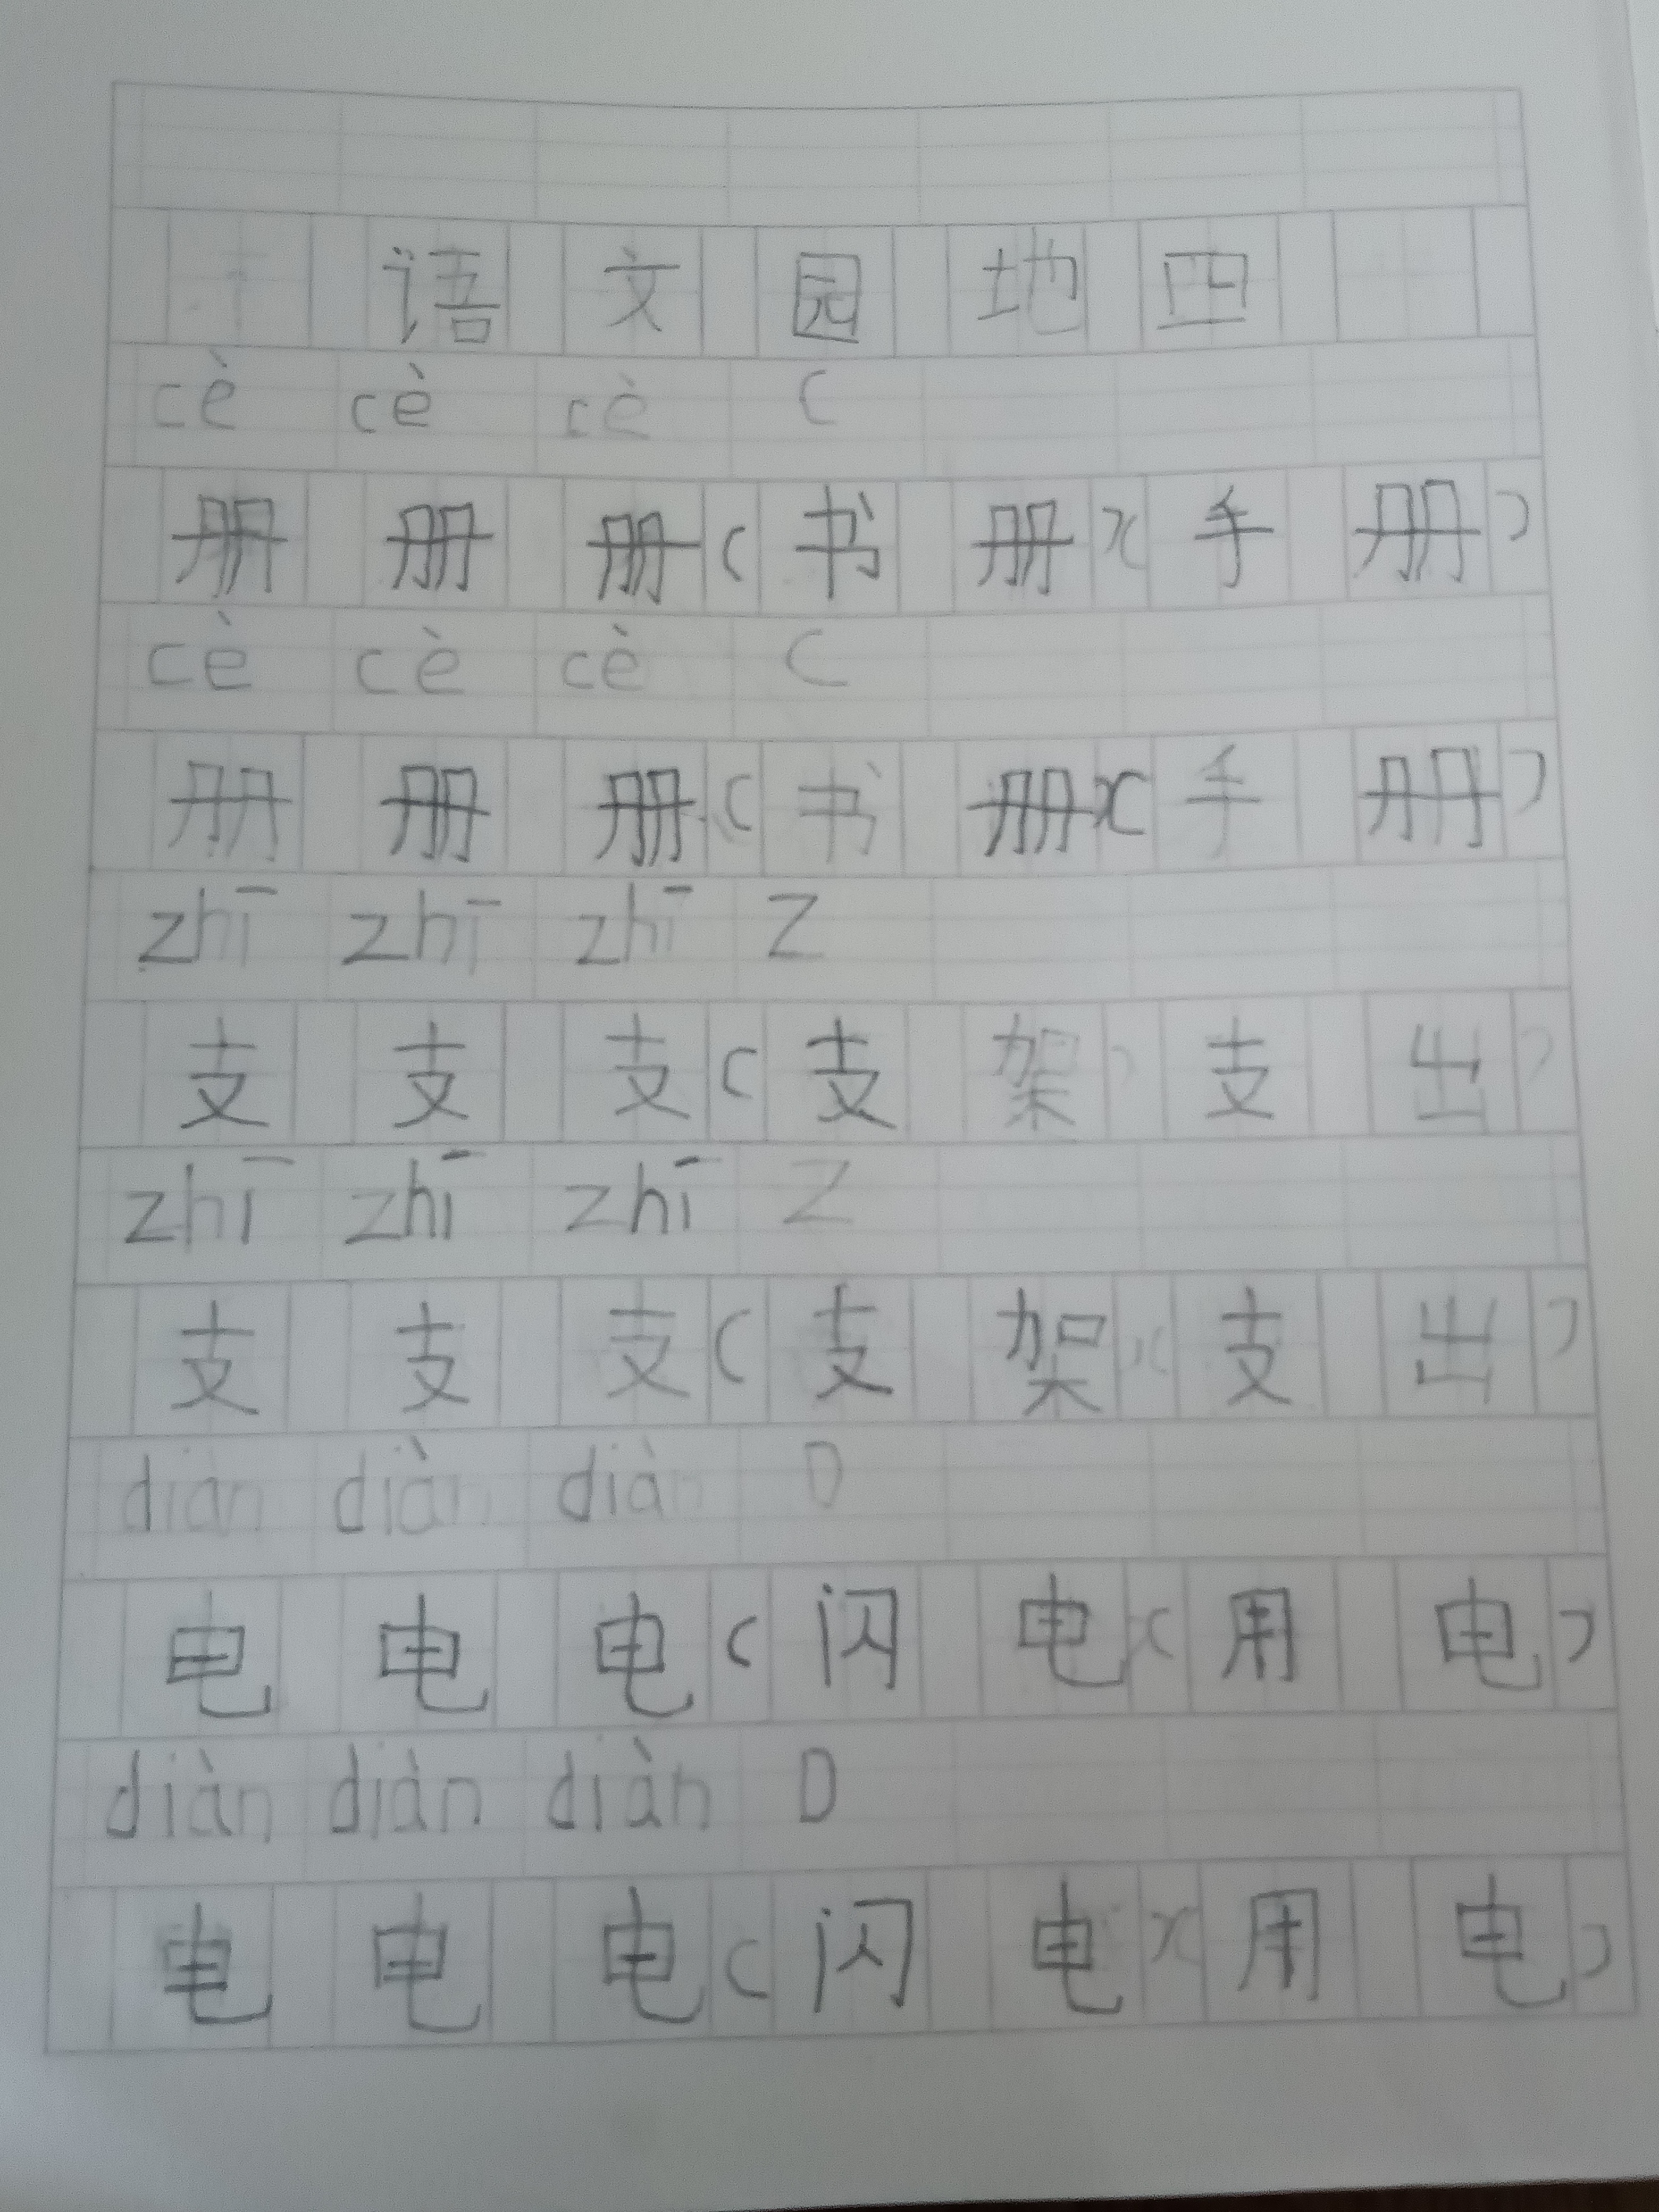 语文园地四
cè cè cè C
册册册(书册)(手册)
cè cè cè C
册册册(书册)(手册)
zhī zhī zhī Z
支支支(支架)支出)
zhī zhī zhī Z
支支支(支架)(支出)
diàn diàn diàn D
电电电(闪电)(用电)
diàn diàn diàn D
电电电(闪电)(用电)